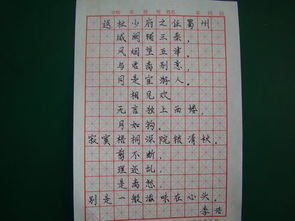 送杜少府之任蜀州
城阙辅三秦，
风烟望五津。
与君离别意，
同是宦游人。
相见欢
无言独上西楼，
月如钩。
寂寞梧桐深院锁清秋。
剪不断，
理还乱，
是离愁。
别是一般滋味在心头。
李煜